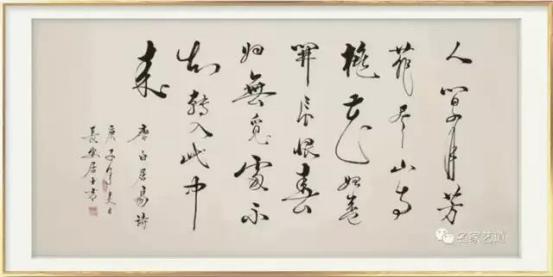 人间四月芳
菲尽山寺
桃花始盛
開長恨春
归無覓處不
知轉入此中
来
唐白居易詩
庚子年夏日
長安居士書
名家艺道